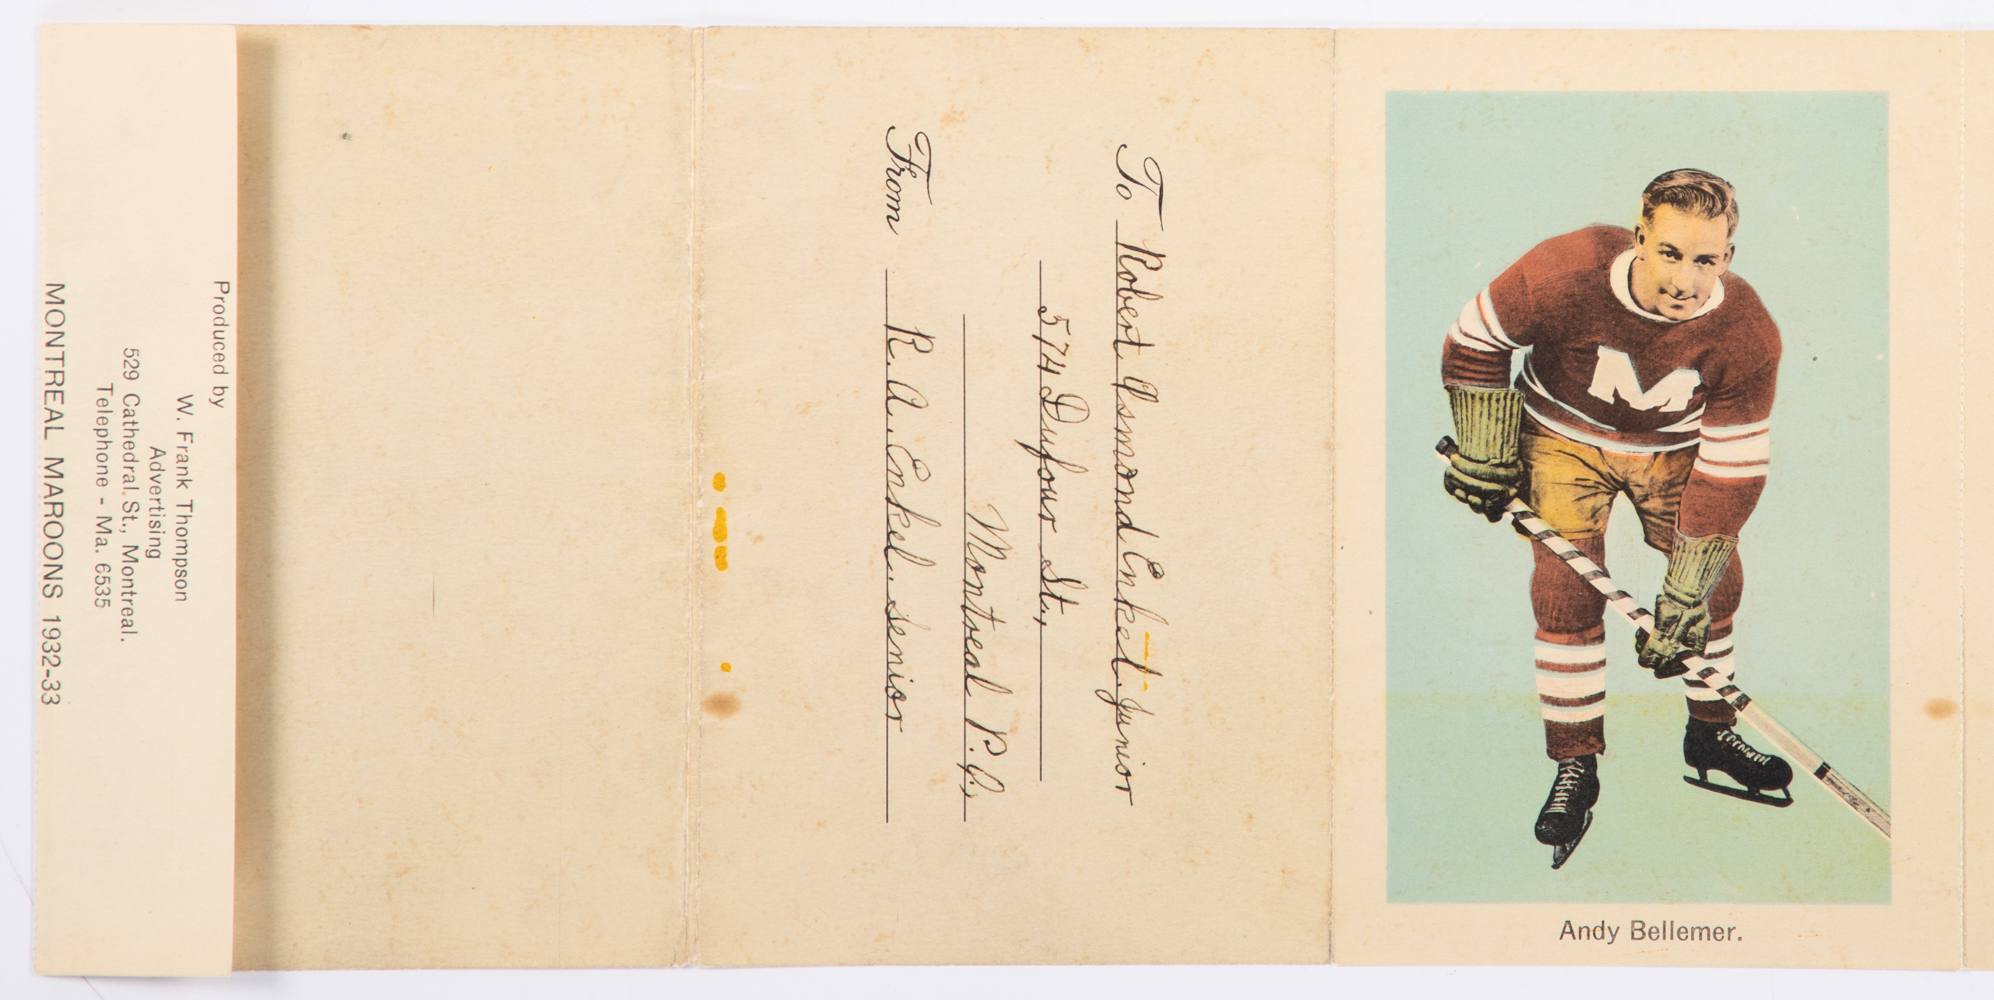 Produced by
W. Frank Thompson
Advertising
529 Cathedral St., Montreal.
Telephone - Ma. 6535
MONTREAL MAROONS 1932-33
To Robert Osmond Enkel. Junior
574 Dufour St.,
Montreal P.Q,
From R. A. Enkel. Senior
M
Andy Bellemer.